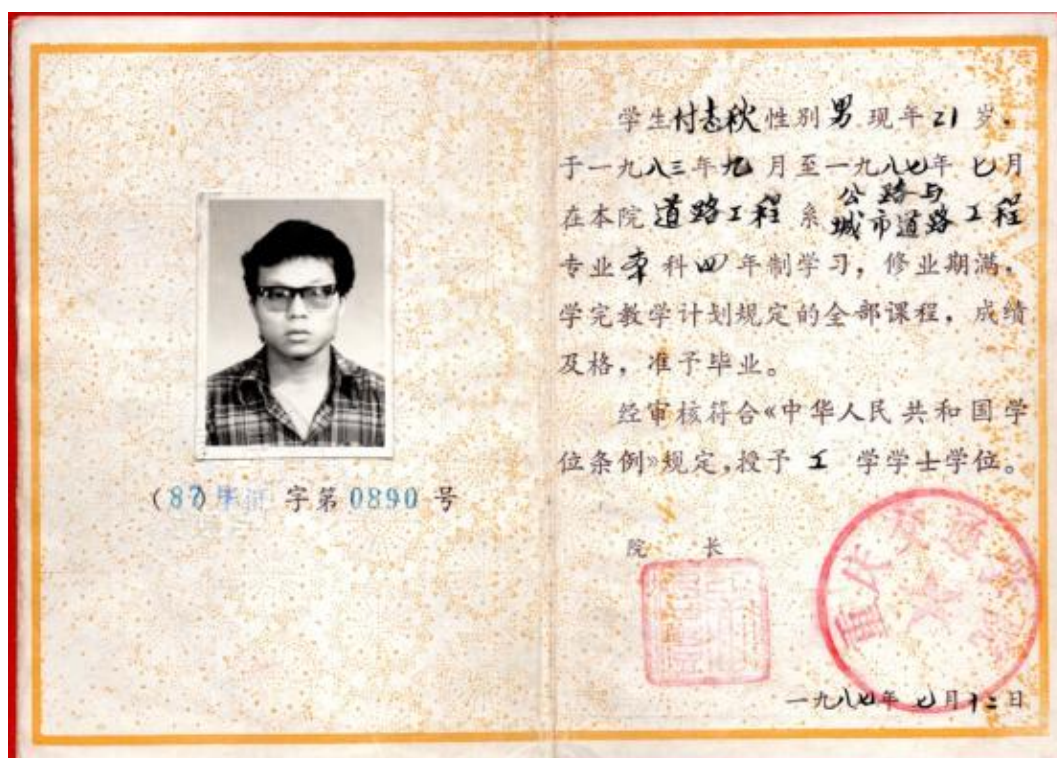 (87)毕证 字第 0890 号
学生付志秋性别男现年21岁,
于一九八三年九月至一九八七年七月
在本院道路工程系公路与城市道路工程
专业本科四年制学习，修业期满，
学完教学计划规定的全部课程，成绩
及格，准予毕业。
经审核符合《中华人民共和国学
位条例》规定,授予工学学士学位。
院长
重庆交通学院
一九八七年七月十二日